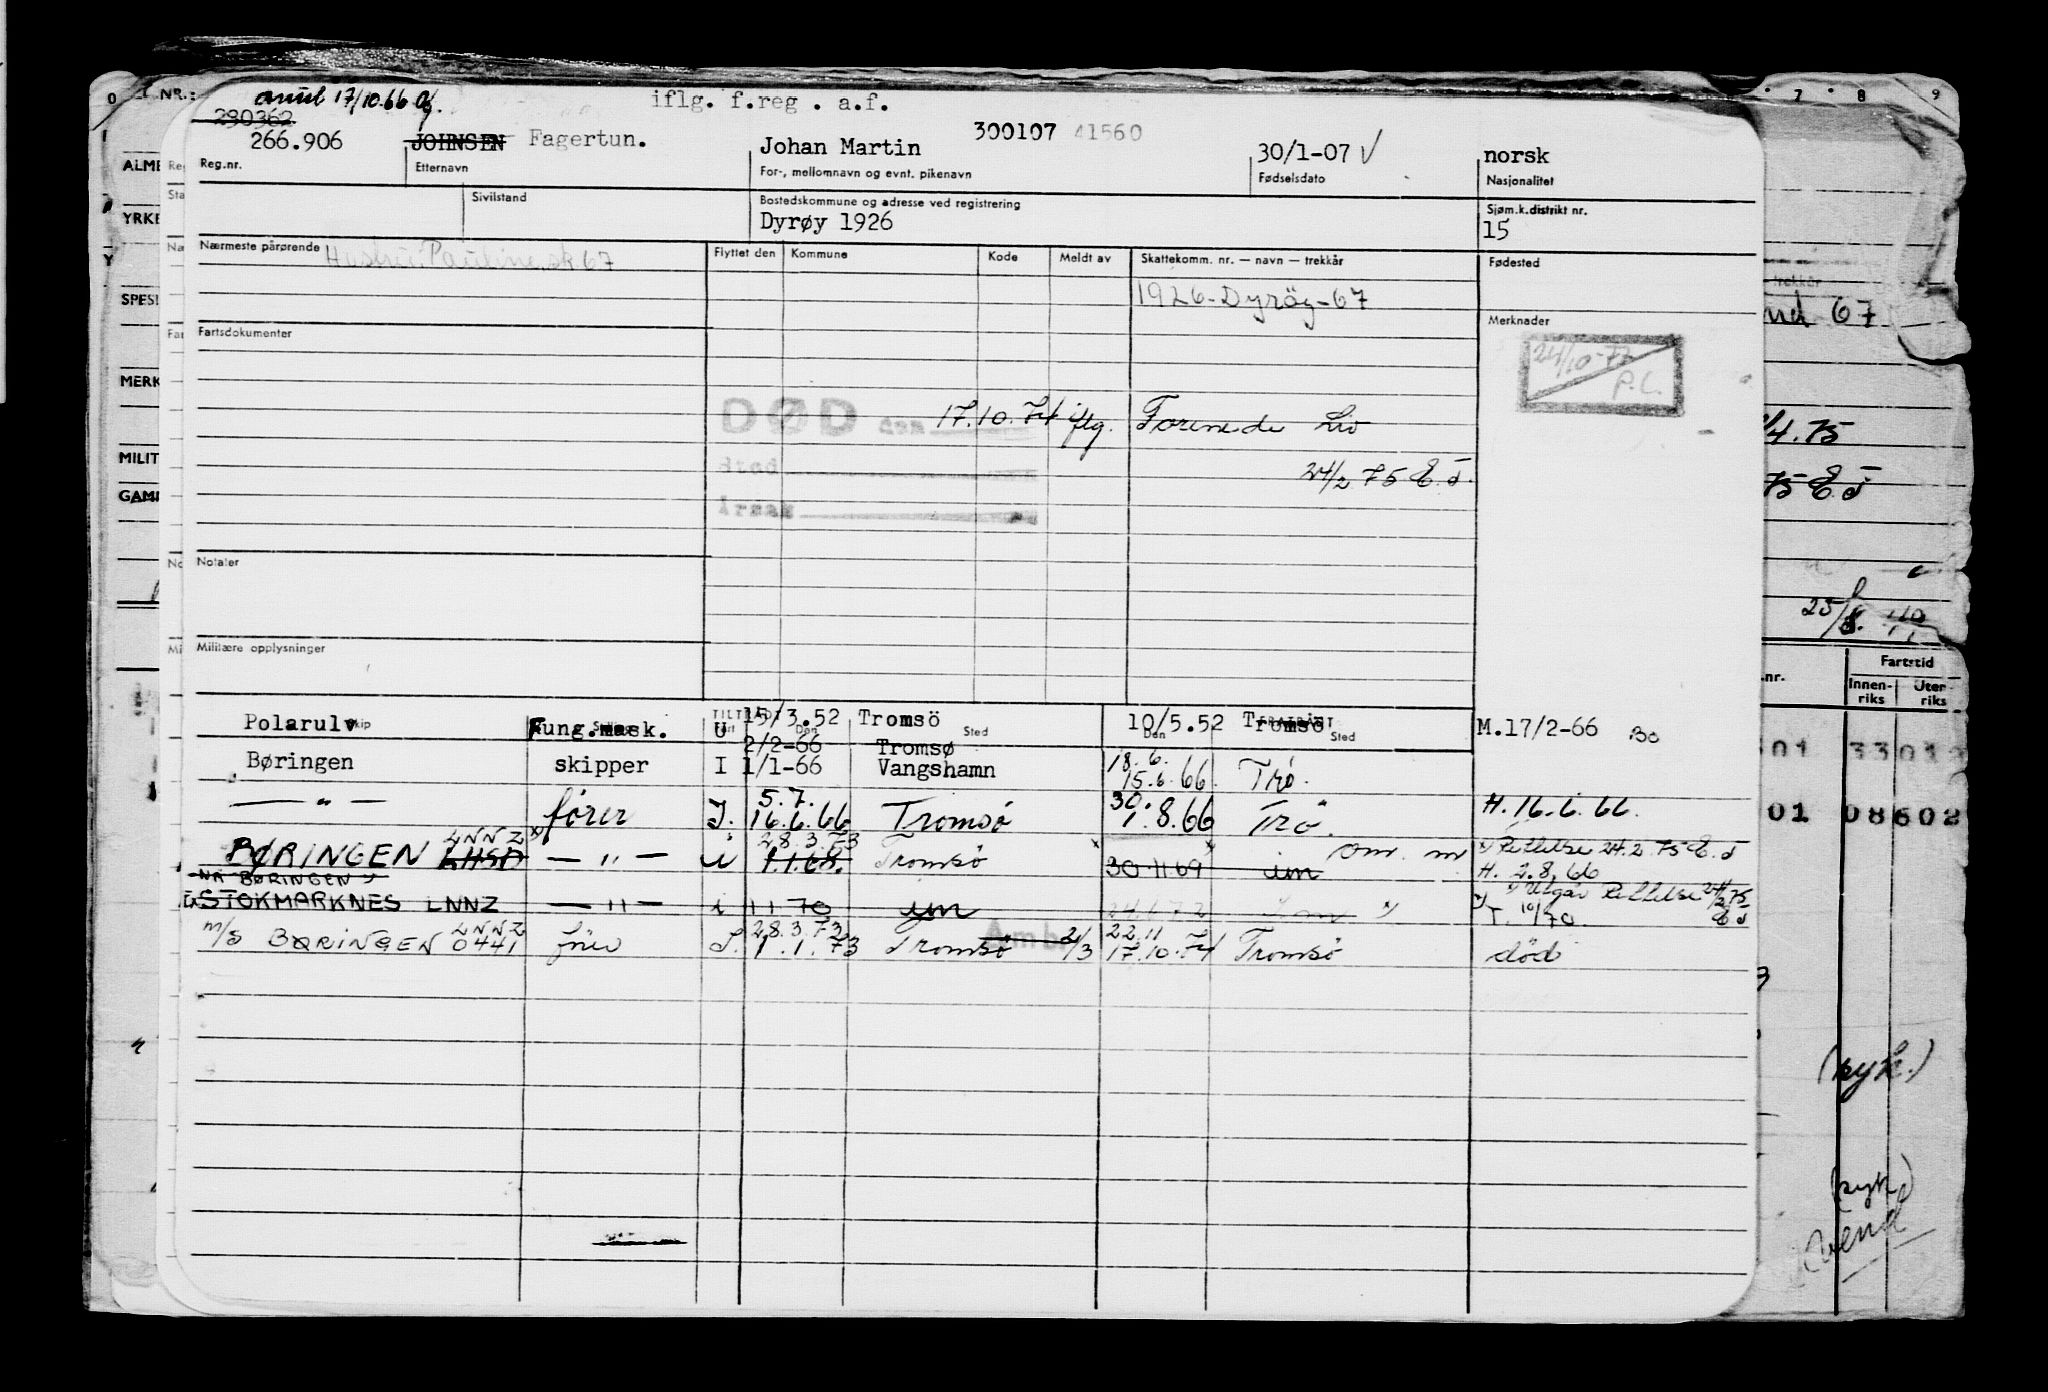 annul 17/10.66
iflg. f.reg . a.f.
290362
266.906 JOHNSEN Fagertun. Johan Martin 300107 41560 30/1-07 norsk
Reg.nr. Etternavn For-, mellomnavn og evnt. pikenavn Fødselsdato Nasjonalitet
Sivilstand Bostedskommune og adresse ved registrering Sjøm.k.distrikt nr.
Dyrøy 1926 15
Nærmeste pårørende Hustru: Pauline sk 67 Flyttet den Kommune Kode Meldt av Skattekomm. nr. — navn — trekkår Fødested
1926-Dyröy-67
Fartsdokumenter Merknader
24/10-77
P.L.
DØD den 17.10.74 iflg. Forenede Liv
Sted 24/2 75 E.J.
Årsak
Notater
Militære opplysninger
Skip Stilling TILTRÅDT Fart Den Sted FRATRÅDT Den Sted
Polarulv Fung.mask. U 15/3.52 Tromsö 10/5.52 Tromsö M.17/2-66 Bo
2/2-66 Tromsø
Børingen skipper I 1/1-66 Vangshamn 18.6. 15.6.66 Trö.
— " — fører I. 5.7. 16.6.66 Tromsö 30. 1.8.66 Trö. H. 16.6.66.
BØRINGEN LHSD LNNZ — " — i 28.3.73 1.1.68. Tromsö 30.11.69 um Omr. m x) Rettelse 24.2.75 E.J
H. 2.8.66
NÅ BØRINGEN
STOKMARKNES LNNZ — " — i 1 1 70 um 24.1.72 x) Utgår Rettelse 24/2 75 E J
T. 10/70.
m/s BØRINGEN LNNZ 0441 fører I. 28.3.73 1.1.73 Tromsö 2/3 22.11 17.10.74 Tromsö död
ALME
YRKE
SPESI
MERK
MILIT
GAMM
7 8 9
67
/4.75
75 E.J
25/8.
nr. Fartstid
Innen-riks Uten-riks
01 33012
01 08602
(syk.)
(syk)
Vend